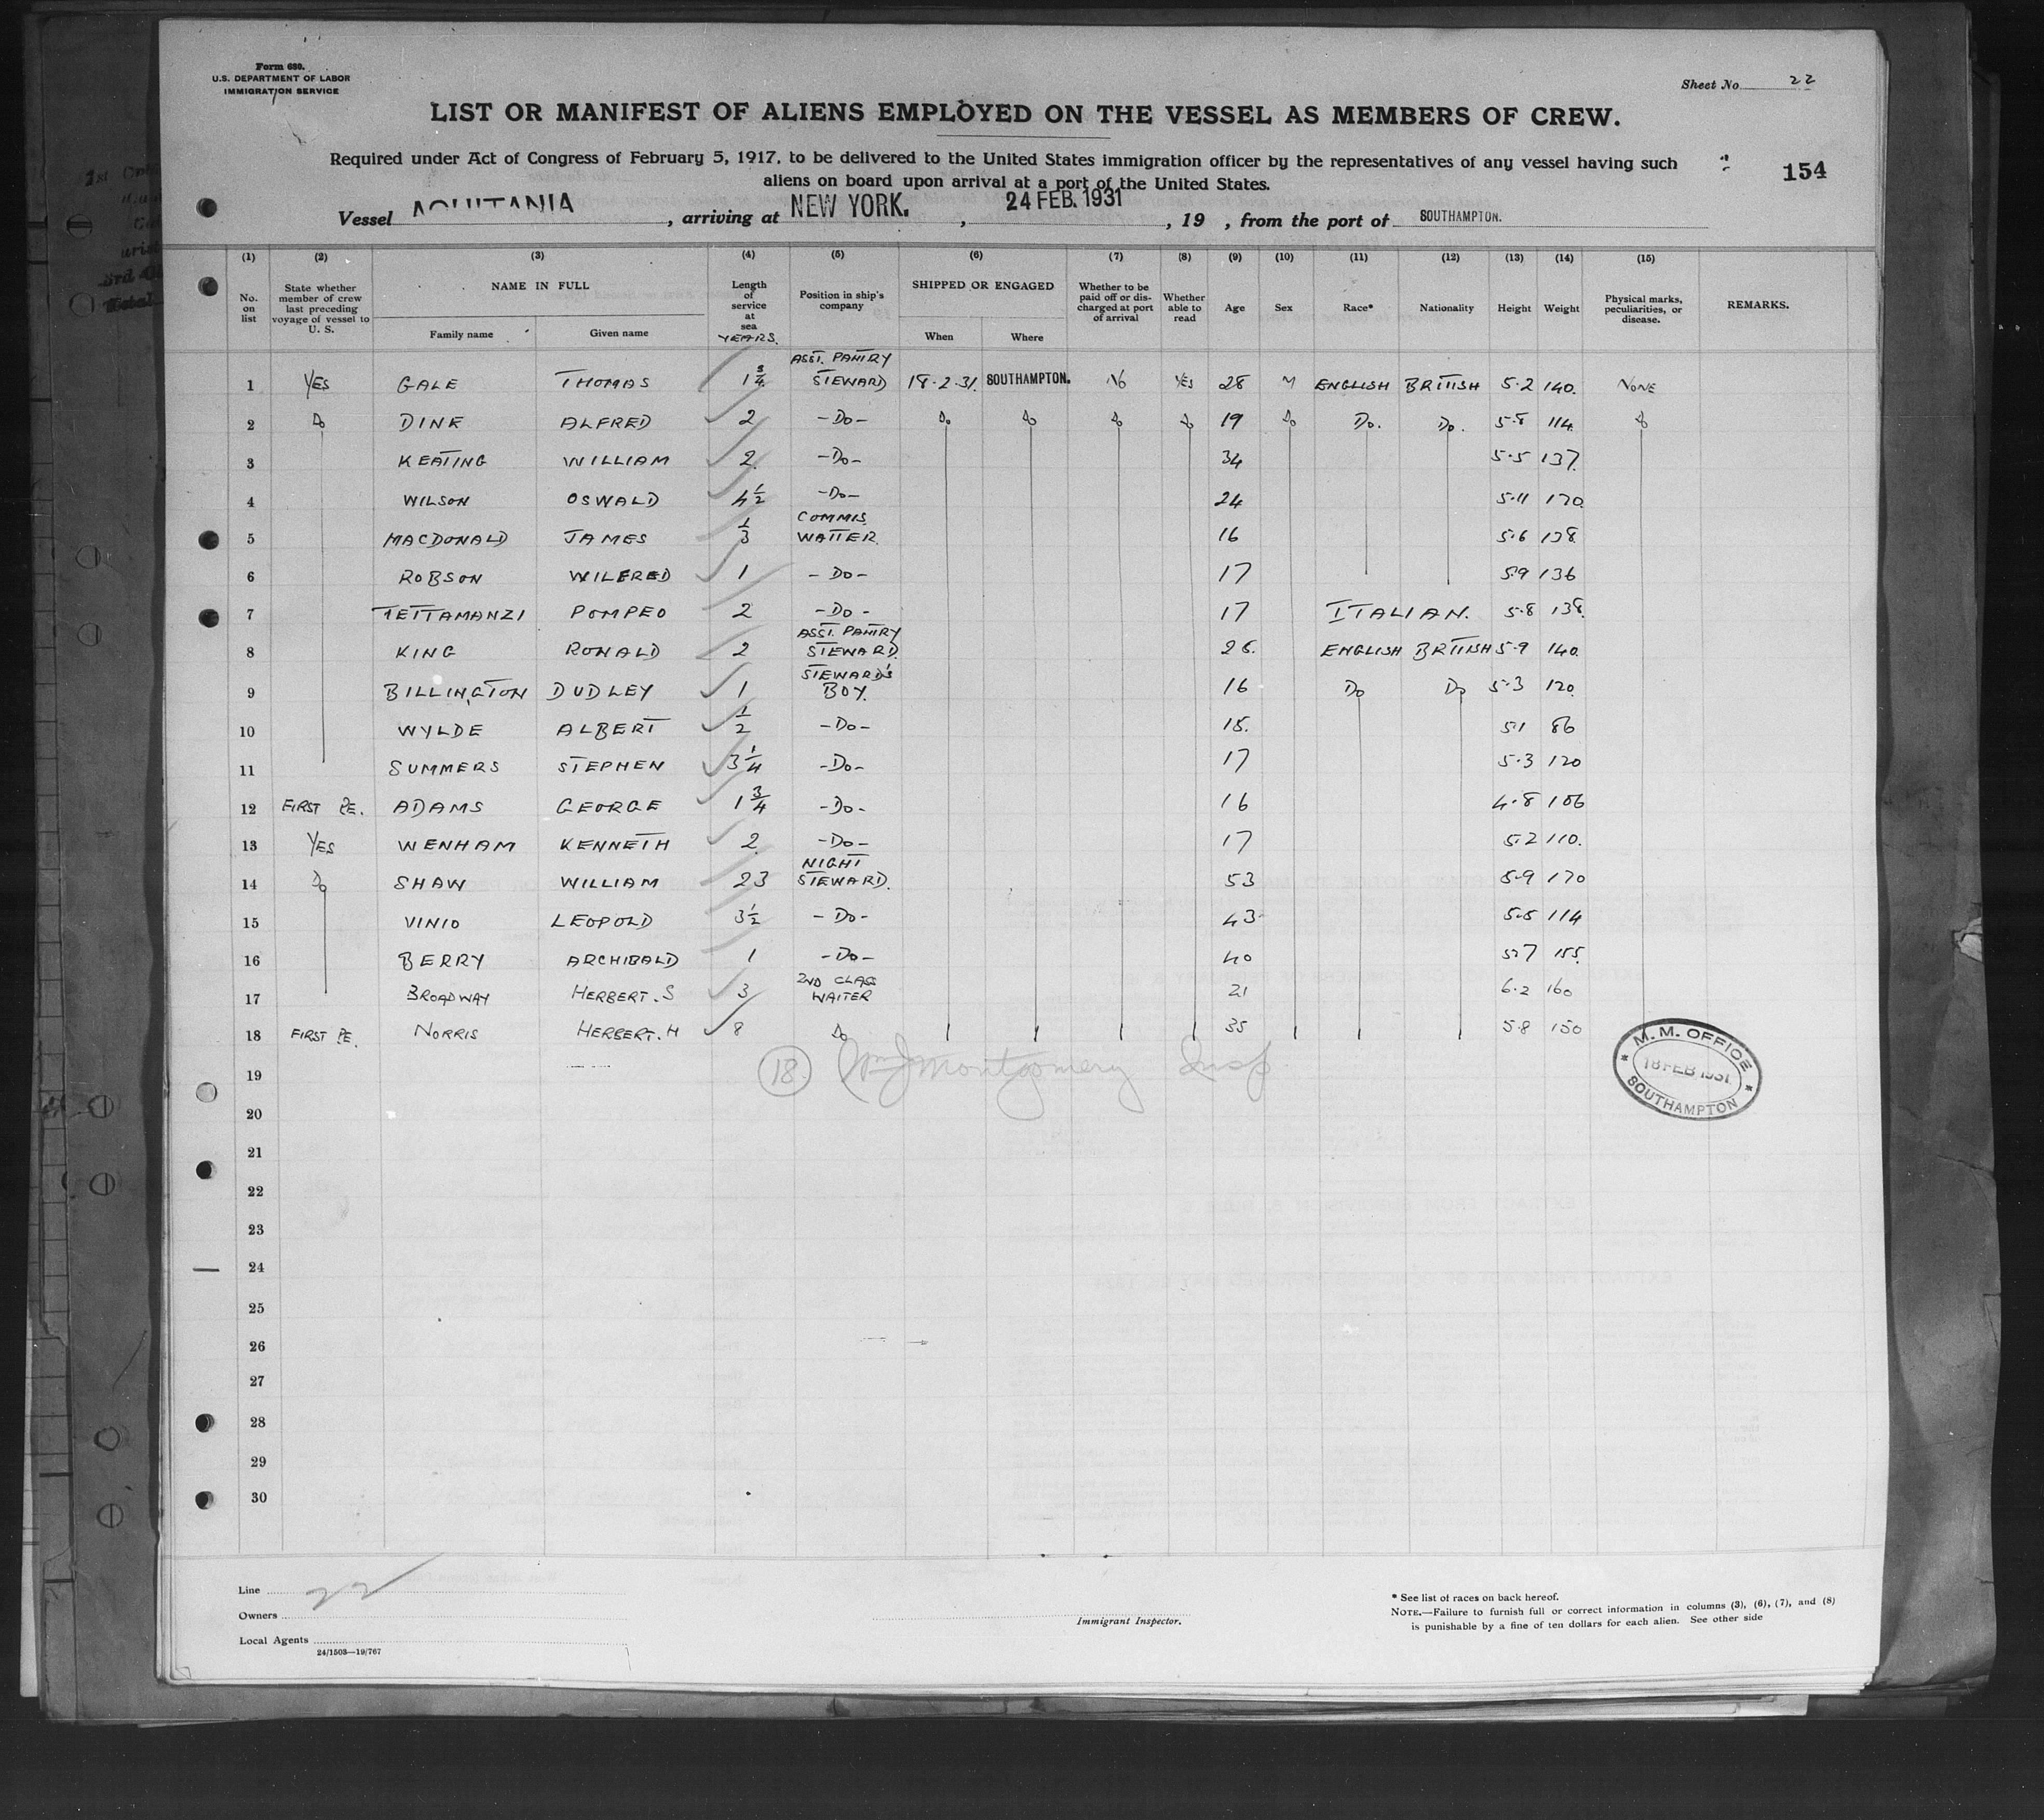 Form 680.
U.S. DEPARTMENT OF LABOR
IMMIGRATION SERVICE
Sheet No. 22
LIST OR MANIFEST OF ALIENS EMPLOYED ON THE VESSEL AS MEMBERS OF CREW.
Required under Act of Congress of February 5, 1917, to be delivered to the United States immigration officer by the representatives of any vessel having such
aliens on board upon arrival at a port of the United States.
154
Vessel AQUITANIA, arriving at NEW YORK., 24 FEB. 1931, 19 , from the port of SOUTHAMPTON.
(1) (2) (3) (4) (5) (6) (7) (8) (9) (10) (11) (12) (13) (14) (15)
No. on list State whether member of crew last preceding voyage of vessel to U. S. NAME IN FULL Family name Given name Length of service at sea YEARS. Position in ship's company SHIPPED OR ENGAGED When Where Whether to be paid off or discharged at port of arrival Whether able to read Age Sex Race* Nationality Height Weight Physical marks, peculiarities, or disease. REMARKS.
1 YES GALE THOMAS 1 3/4 ASST. PANTRY STEWARD 18.2.31. SOUTHAMPTON. NO YES 28 M ENGLISH BRITISH 5.2 140. NONE
2 Do DINE ALFRED 2 -Do- Do Do Do Do 19 Do Do. Do. 5.8 114. Do
3 KEATING WILLIAM 2. -Do- 34 5.5 137.
4 WILSON OSWALD 4 1/2 -Do- 24 5.11 170.
5 MACDONALD JAMES 1/3 COMMIS. WAITER. 16 5.6 138.
6 ROBSON WILFRED 1 -Do- 17 5.9 136
7 TETTAMANZI POMPEO 2 -Do- 17 ITALIAN. 5.8 138.
8 KING RONALD 2 ASST. PANTRY STEWARD. ENGLISH BRITISH 5.9 140.
9 BILLINGTON DUDLEY 1 STEWARD'S BOY. 16 Do Do 5.3 120.
10 WYLDE ALBERT 1/2 -Do- 5.1 86
11 SUMMERS STEPHEN 3 1/4 -Do- 17 5.3 120
12 FIRST PE. ADAMS GEORGE 1 3/4 -Do- 16 4.8 106
13 YES WENHAM KENNETH 2. -Do- 17 5.2 110.
14 Do SHAW WILLIAM 23 NIGHT STEWARD. 53 5.9 170
15 VINIO LEOPOLD 3 1/2 -Do- 43 5.5 114
16 BERRY ARCHIBALD 1 -Do- 40 5.7 155.
17 BROADWAY HERBERT. S 3 2ND CLASS WAITER 21 6.2 160
18 FIRST PE. NORRIS HERBERT. H 8 Do 35 5.8 150
19 18 Wm J Montgomery Insp
M. M. OFFICE
18 FEB 1931
SOUTHAMPTON
20
21
22
23
24
25
26
27
28
29
30
Line 22
Owners
Local Agents
24/1503—19/767
Immigrant Inspector.
* See list of races on back hereof.
NOTE.—Failure to furnish full or correct information in columns (3), (6), (7), and (8)
is punishable by a fine of ten dollars for each alien. See other side